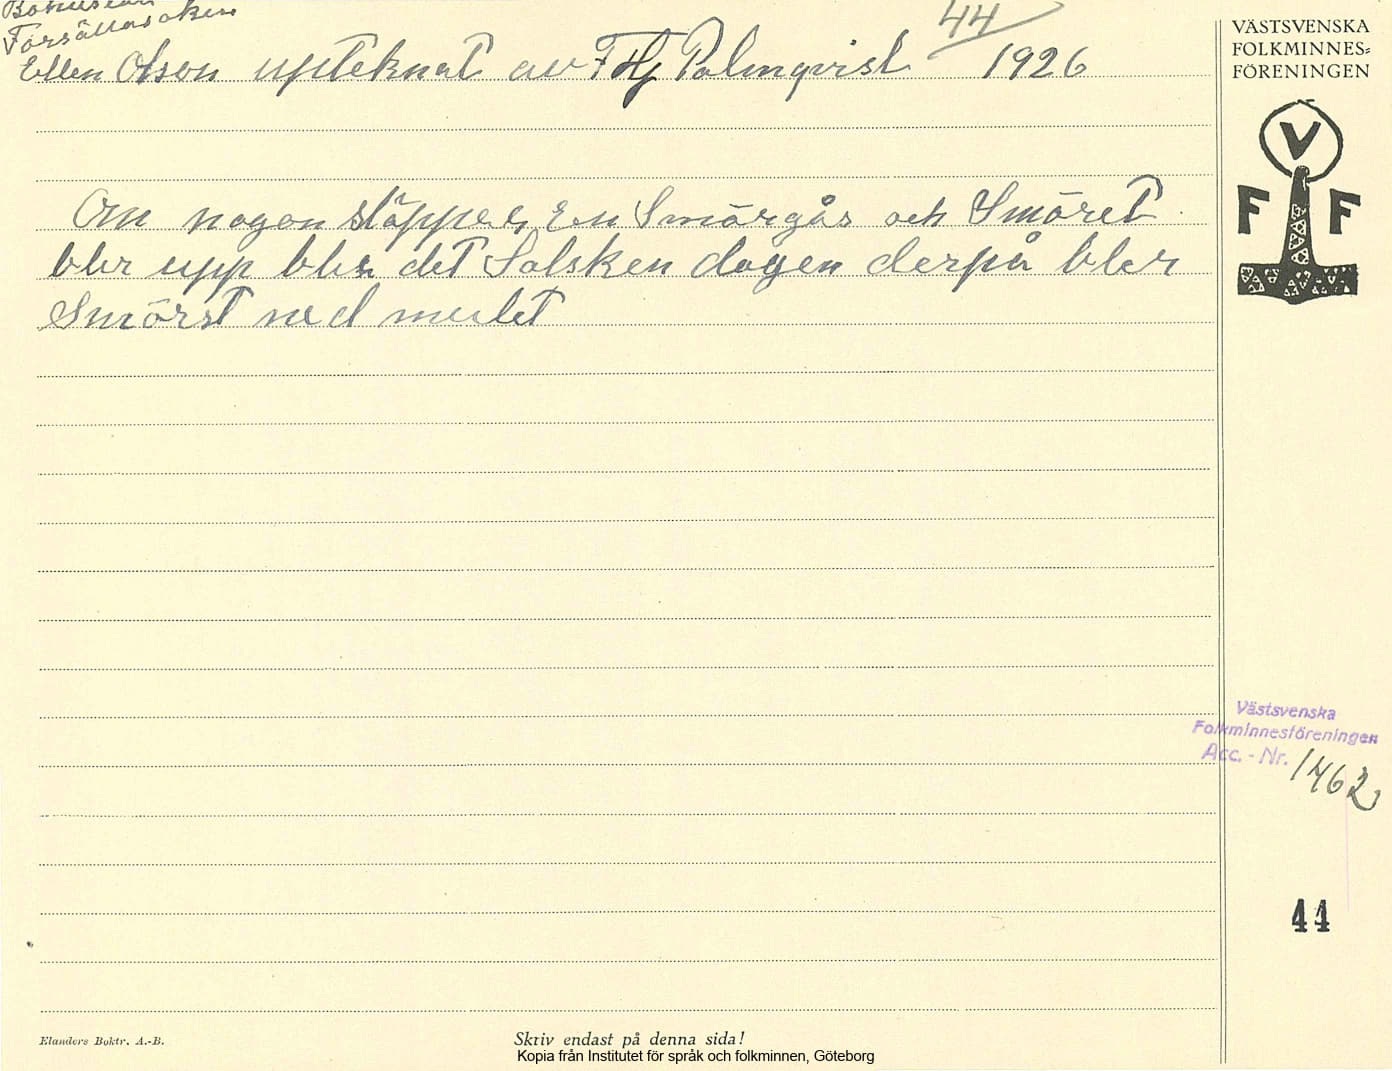 Bohuslän
Försällasoken
44
Ellen Olson upteknat av F Hj Palmqvist 1926
Om nogon släpper En Smörgås och Smöret
blir upp blir det Solsken dagen derpå blir
Smörst ned mulet
VÄSTSVENSKA
FOLKMINNES=
FÖRENINGEN
V
F F
Västsvenska
Folkminnesföreningen
Acc. - Nr. 1462
44
Elanders Boktr. A.-B.
Skriv endast på denna sida!
Kopia från Institutet för språk och folkminnen, Göteborg